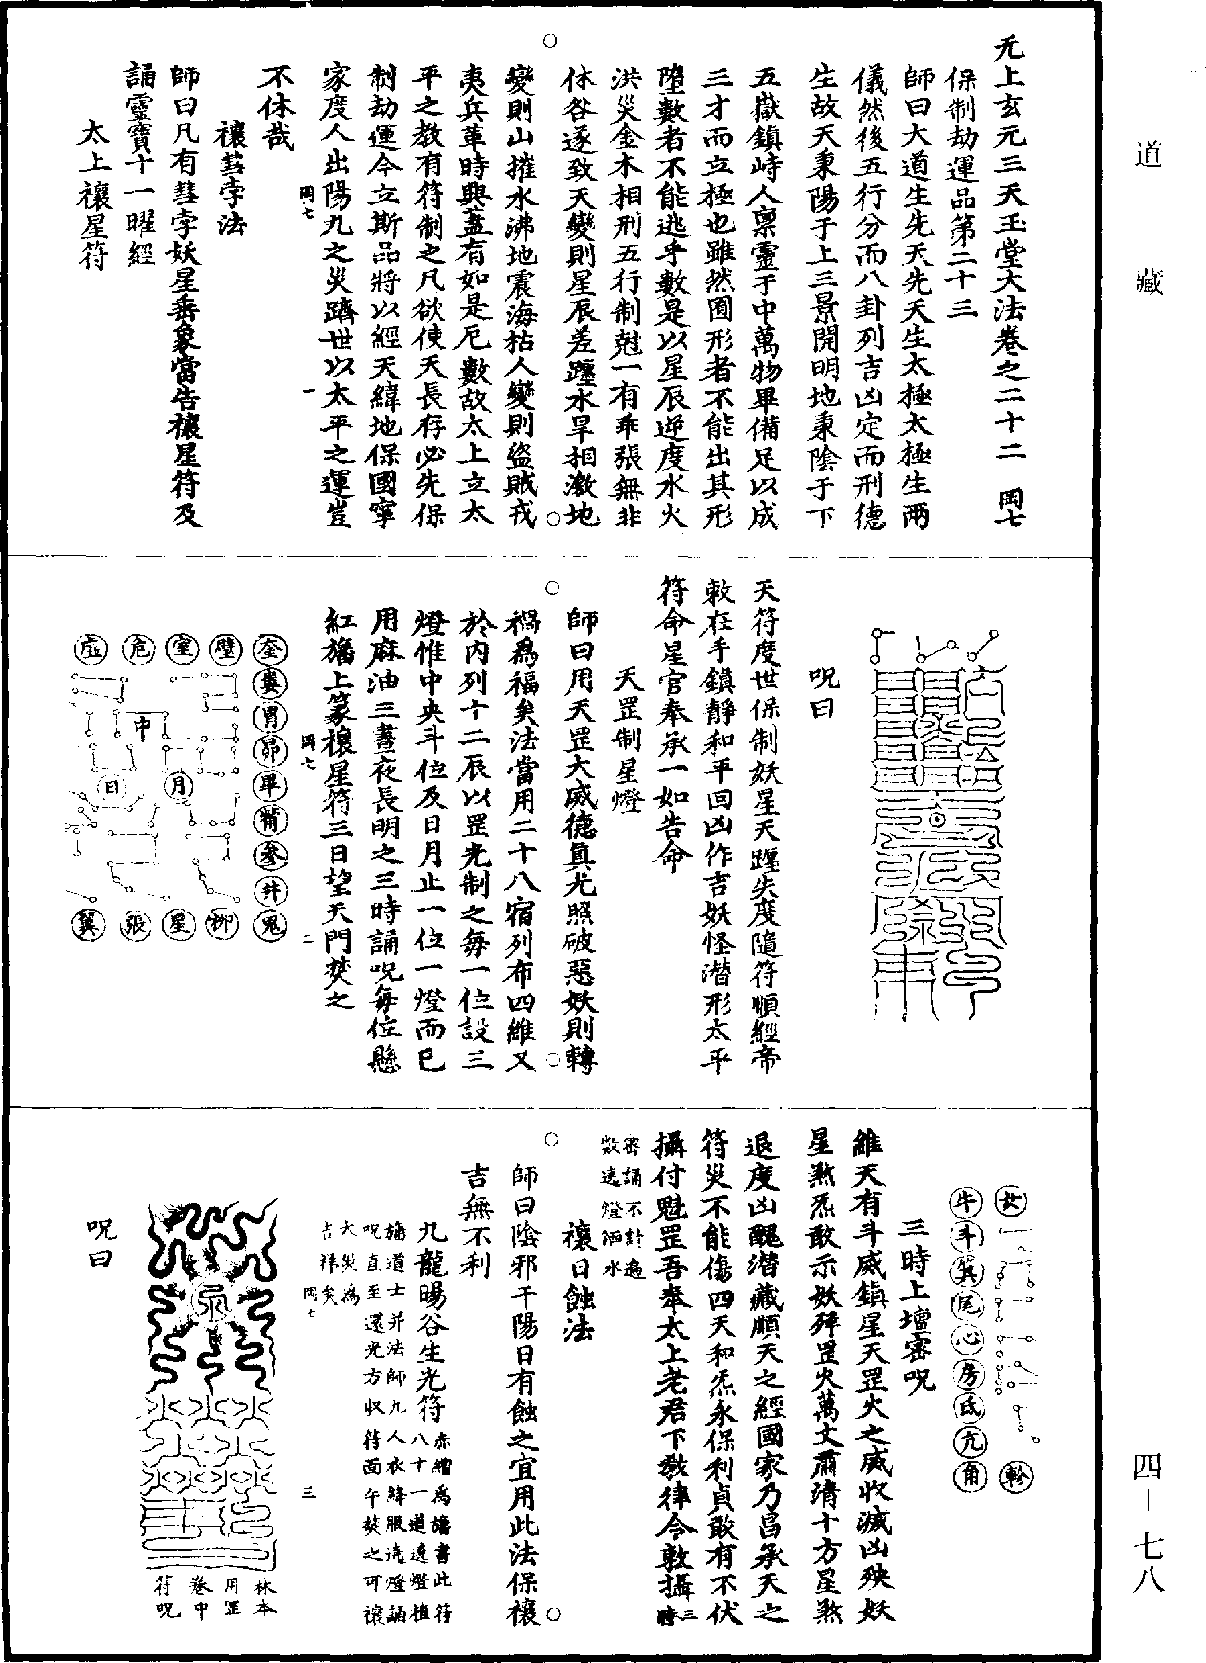 道藏
四—七八
无上玄元三天玉堂大法卷之二十二 岡七
保制劫運品第二十三
師曰大道生先天先天生太極太極生兩
儀然後五行分而八卦列吉凶定而刑德
生故天秉陽于上三景開明地秉陰于下
五嶽鎮峙人禀靈于中萬物畢備足以成
三才而立極也雖然囿形者不能出其形
墮數者不能逃乎數是以星辰逆度水火
洪災金木相刑五行制尅一有乖張無非
休咎逐致天變則星辰差躔水旱相激地
變則山摧水沸地震海枯人變則盜賊戎
夷兵革時興蓋有如是厄數故太上立太
平之教有符制之凡欲使天長存必先保
制劫運今立斯品將以經天緯地保國寧
家度人出陽九之災躋世以太平之運豈
岡七 一
不休哉
禳彗孛法
師曰凡有彗孛妖星垂象當告禳星符及
誦靈寶十一曜經
太上禳星符
呪曰
天符度世保制妖星天躔失度隨符順經帝
敕在手鎮靜和平回凶作吉妖怪潛形太平
符命星官奉承一如告命
天罡制星燈
師曰用天罡大威德真光照破惡妖則轉
禍為福矣法當用二十八宿列布四維又
於內列十二辰以罡光制之每一位設三
燈惟中央斗位及日月止一位一燈而已
用麻油三晝夜長明之三時誦呪每位懸
紅旛上篆禳星符三日望天門焚之
岡七 二
奎婁胃昴畢觜參井鬼
壁 柳
室 星
危 張
虛 翼
中
月 日
女 軫
牛斗箕尾心房氐亢角
三時上壇密呪
維天有斗威鎮星天罡火之威收滅凶殃妖
星煞炁敢示妖殍罡火萬丈肅清十方星煞
退度凶醜潛藏順天之經國家乃昌承天之
符災不能傷四天和炁永保利貞敢有不伏
攝付魁罡吾奉太上老君下教律令敕攝三時
密誦不計遍
數遶燈洒水
禳日蝕法
師曰陰邪干陽日有蝕之宜用此法保禳
吉無不利
九龍暘谷生光符赤繒為旛書此符
八十一道遶燈植
旛道士并法師九人衣絳服遶燈誦
呪直至還光方收符面午焚之可禳
大災為
吉祥矣
岡七 三
林本
用罡
卷中
符呪
呪曰